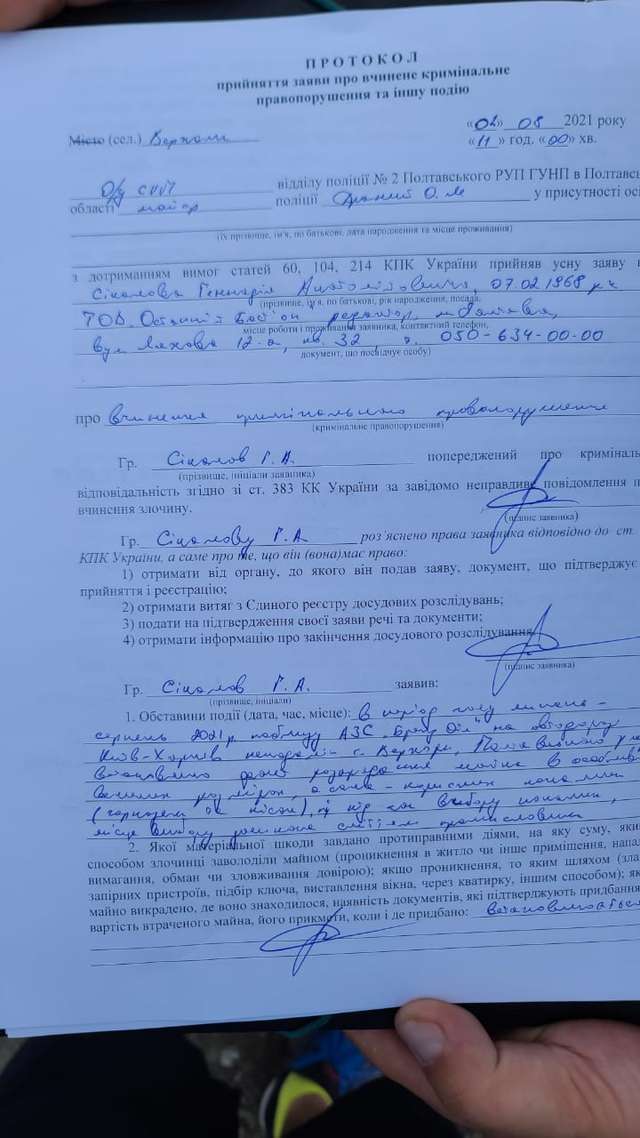 ПРОТОКОЛ
прийняття заяви про вчинене кримінальне
правопорушення та іншу подію
Місто (сел.) Верхоли
«02» 08 2021 року
«11» год. «00» хв.
відділу поліції № 2 Полтавського РУП ГУНП в Полтавсь
області майор поліції О. М у присутності ос
(їх прізвище, ім'я, по батькові, дата народження та місце проживання)
з дотриманням вимог статей 60, 104, 214 КПК України прийняв усну заяву
Сікалова Геннадія Анатолійовича, 07.02.1968 р.н
(прізвище, ім'я, по батькові, рік народження, посада,
ТОВ. Останній Бастіон редактор, м Полтава,
місце роботи і проживання заявника, контактний телефон,
вул 12-а, кв. 32, т. 050-634-00-00
документ, що посвідчує особу)
про вчинення кримінального правопорушення
(кримінальне правопорушення)
Гр. Сікалов Г. А. попереджений про криміналь
(прізвище, ініціали заявника)
відповідальність згідно зі ст. 383 КК України за завідомо неправдиве повідомлення п
вчинення злочину.
(підпис заявника)
Гр. Сікалову Г. А роз'яснено права заявника відповідно до ст.
КПК України, а саме про те, що він (вона)має право:
1) отримати від органу, до якого він подав заяву, документ, що підтверджує
прийняття і реєстрацію;
2) отримати витяг з Єдиного реєстру досудових розслідувань;
3) подати на підтвердження своєї заяви речі та документи;
4) отримати інформацію про закінчення досудового розслідування.
(підпис заявника)
Гр. Сікалов Г. А. заявив:
(прізвище, ініціали)
1. Обставини події (дата, час, місце): в період часу липень-
серпень 2021 р поблизу АЗС „Бренд Ойл" на автодорозі
Київ-Харків неподалік с. Верхоли, Полтавського р-ну
встановлено факт розкрадання майна в особливо
великих розмірах, а саме - корисних копалин
(чорнозем та пісок),
місце
2. Якої матеріальної шкоди завдано протиправними діями, на яку суму, яки
способом злочинці заволоділи майном (проникнення в житло чи інше приміщення, напа
вимагання, обман чи зловживання довірою); якщо проникнення, то яким шляхом (зла
запірних пристроїв, підбір ключа, виставлення вікна, через кватирку, іншим способом); як
майно викрадено, де воно знаходилося, наявність документів, які підтверджують придбання
вартість втраченого майна, його прикмети, коли і де придбано: встановлюється